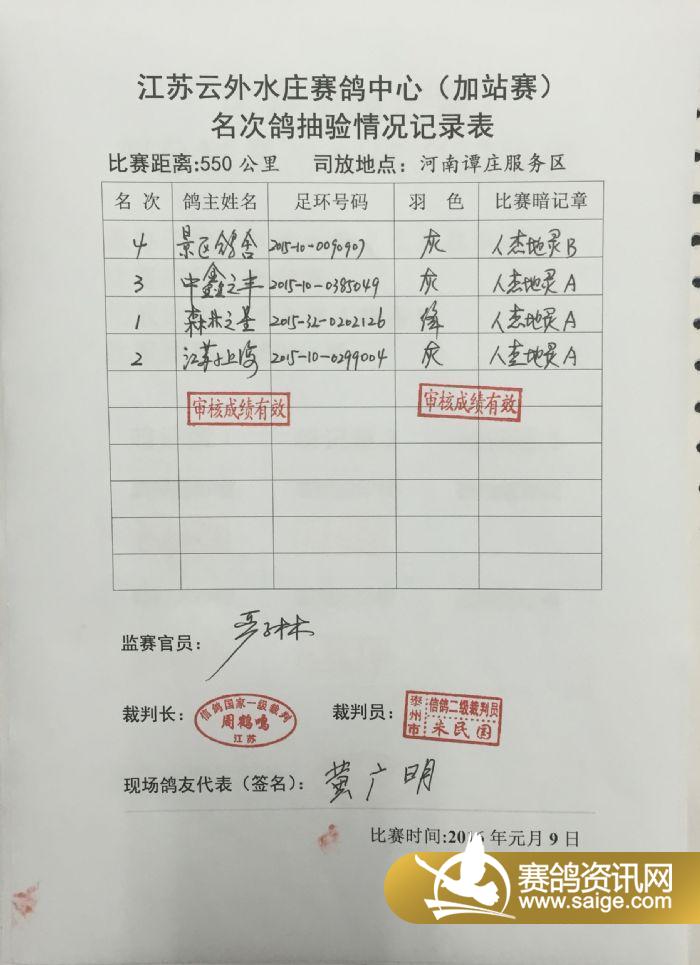 江苏云外水庄赛鸽中心（加站赛）
名次鸽抽验情况记录表
比赛距离:550 公里 司放地点：河南谭庄服务区
名 次 鸽主姓名 足环号码 羽 色 比赛暗记章
4 景区鸽舍 2015-10-0090907 灰 人杰地灵B
3 中鑫之丰 2015-10-0385049 灰 人杰地灵A
1 森林之星 2015-32-0202126 绛 人杰地灵A
2 江苏上海 2015-10-0299004 灰 人杰地灵A
审核成绩有效 审核成绩有效
监赛官员：
裁判长： 信鸽国家一级裁判 周鹤鸣 江苏 裁判员： 泰州市 信鸽二级裁判员 朱民国
现场鸽友代表（签名）： 黄广明
比赛时间:2016 年元月 9 日
赛鸽资讯网
www.saige.com